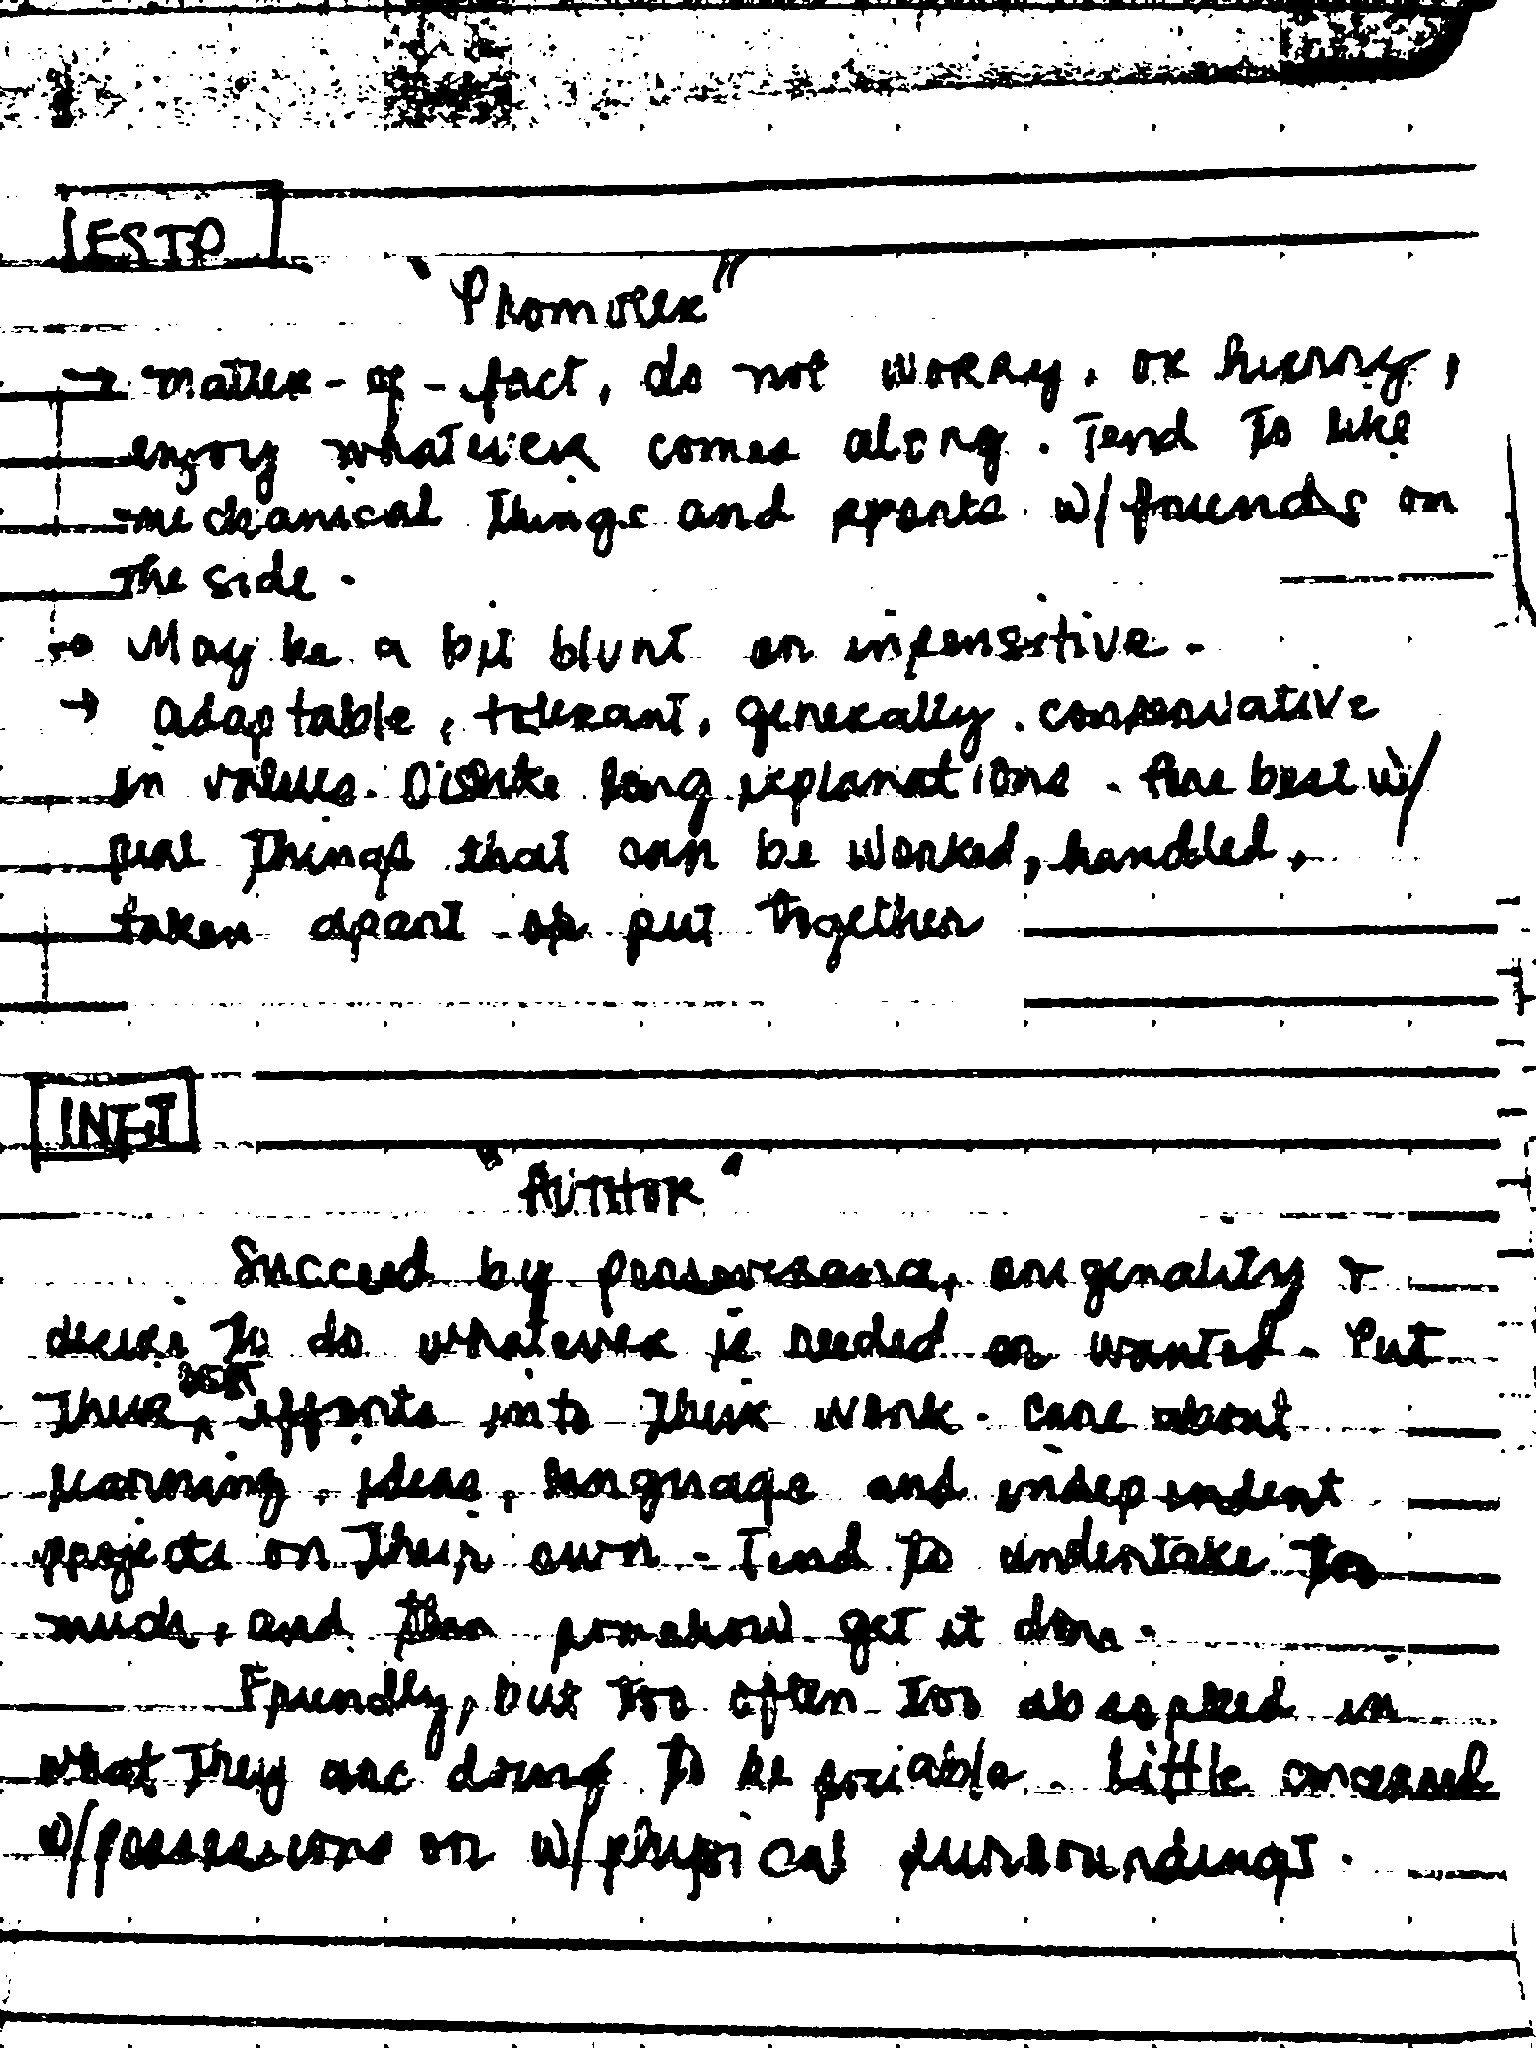 ESTP
"Promoter"
→ Matter-of-fact, do not worry, or hurry,
enjoy whatever comes along. Tend to like
mechanical things and sports w/ friends on
the side.
→ May be a bit blunt or insensitive.
→ Adaptable, tolerant, generally conservative
in values. Dislike long explanations. Are best w/
real things that can be worked, handled,
taken apart or put together
"AUTHOR"
Succeed by perseverance, originality &
desire to do whatever is needed or wanted. Put
their best efforts into their work. Care about
learning, ideas, language and independent
projects on their own. Tend to undertake too
much, and then somehow get it done.
Friendly, but too often too absorbed in
what they are doing to be sociable. Little concerned
w/possessions or w/physical surroundings.